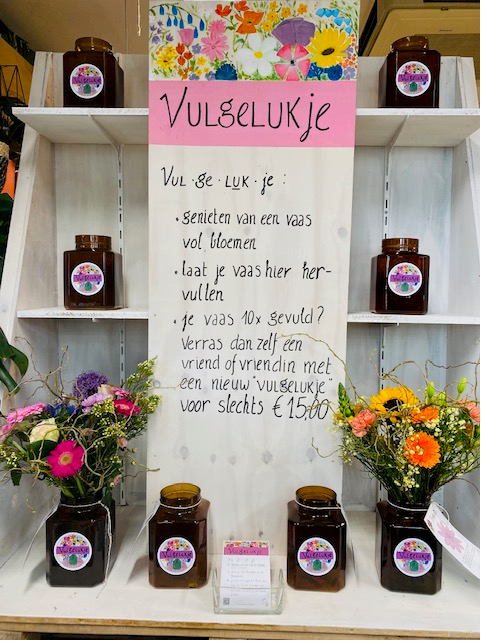 VULGELUKJE
VUL·ge·LUK·je:
• genieten van een vaas
vol bloemen
• laat je vaas hier her-
vullen
• je vaas 10x gevuld?
Verras dan zelf een
vriend of vriendin met
een nieuw "VULGELUKJE"
voor slechts € 15,00
VULGELUKJE
VULGELUKJE
VULGELUKJE
VULGELUKJE
VULGELUKJE
VULGELUKJE
VULGELUKJE
VULGELUKJE
VULGELUKJE